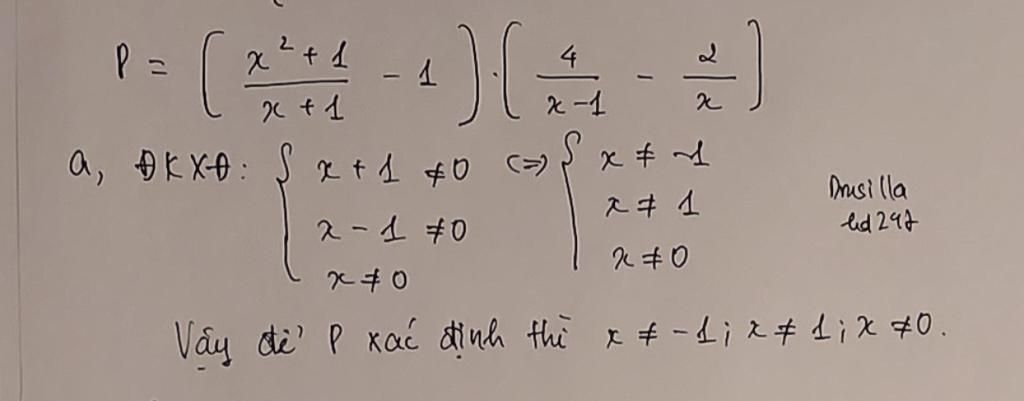 P = ( x² + 1 / x + 1 - 1 ) . ( 4 / x - 1 - 2 / x )
a, ĐKXĐ: { x + 1 ≠ 0 <=> { x ≠ -1
x - 1 ≠ 0 x ≠ 1
x ≠ 0 x ≠ 0
Drusilla
Vậy để P xác định thì x ≠ -1; x ≠ 1; x ≠ 0.